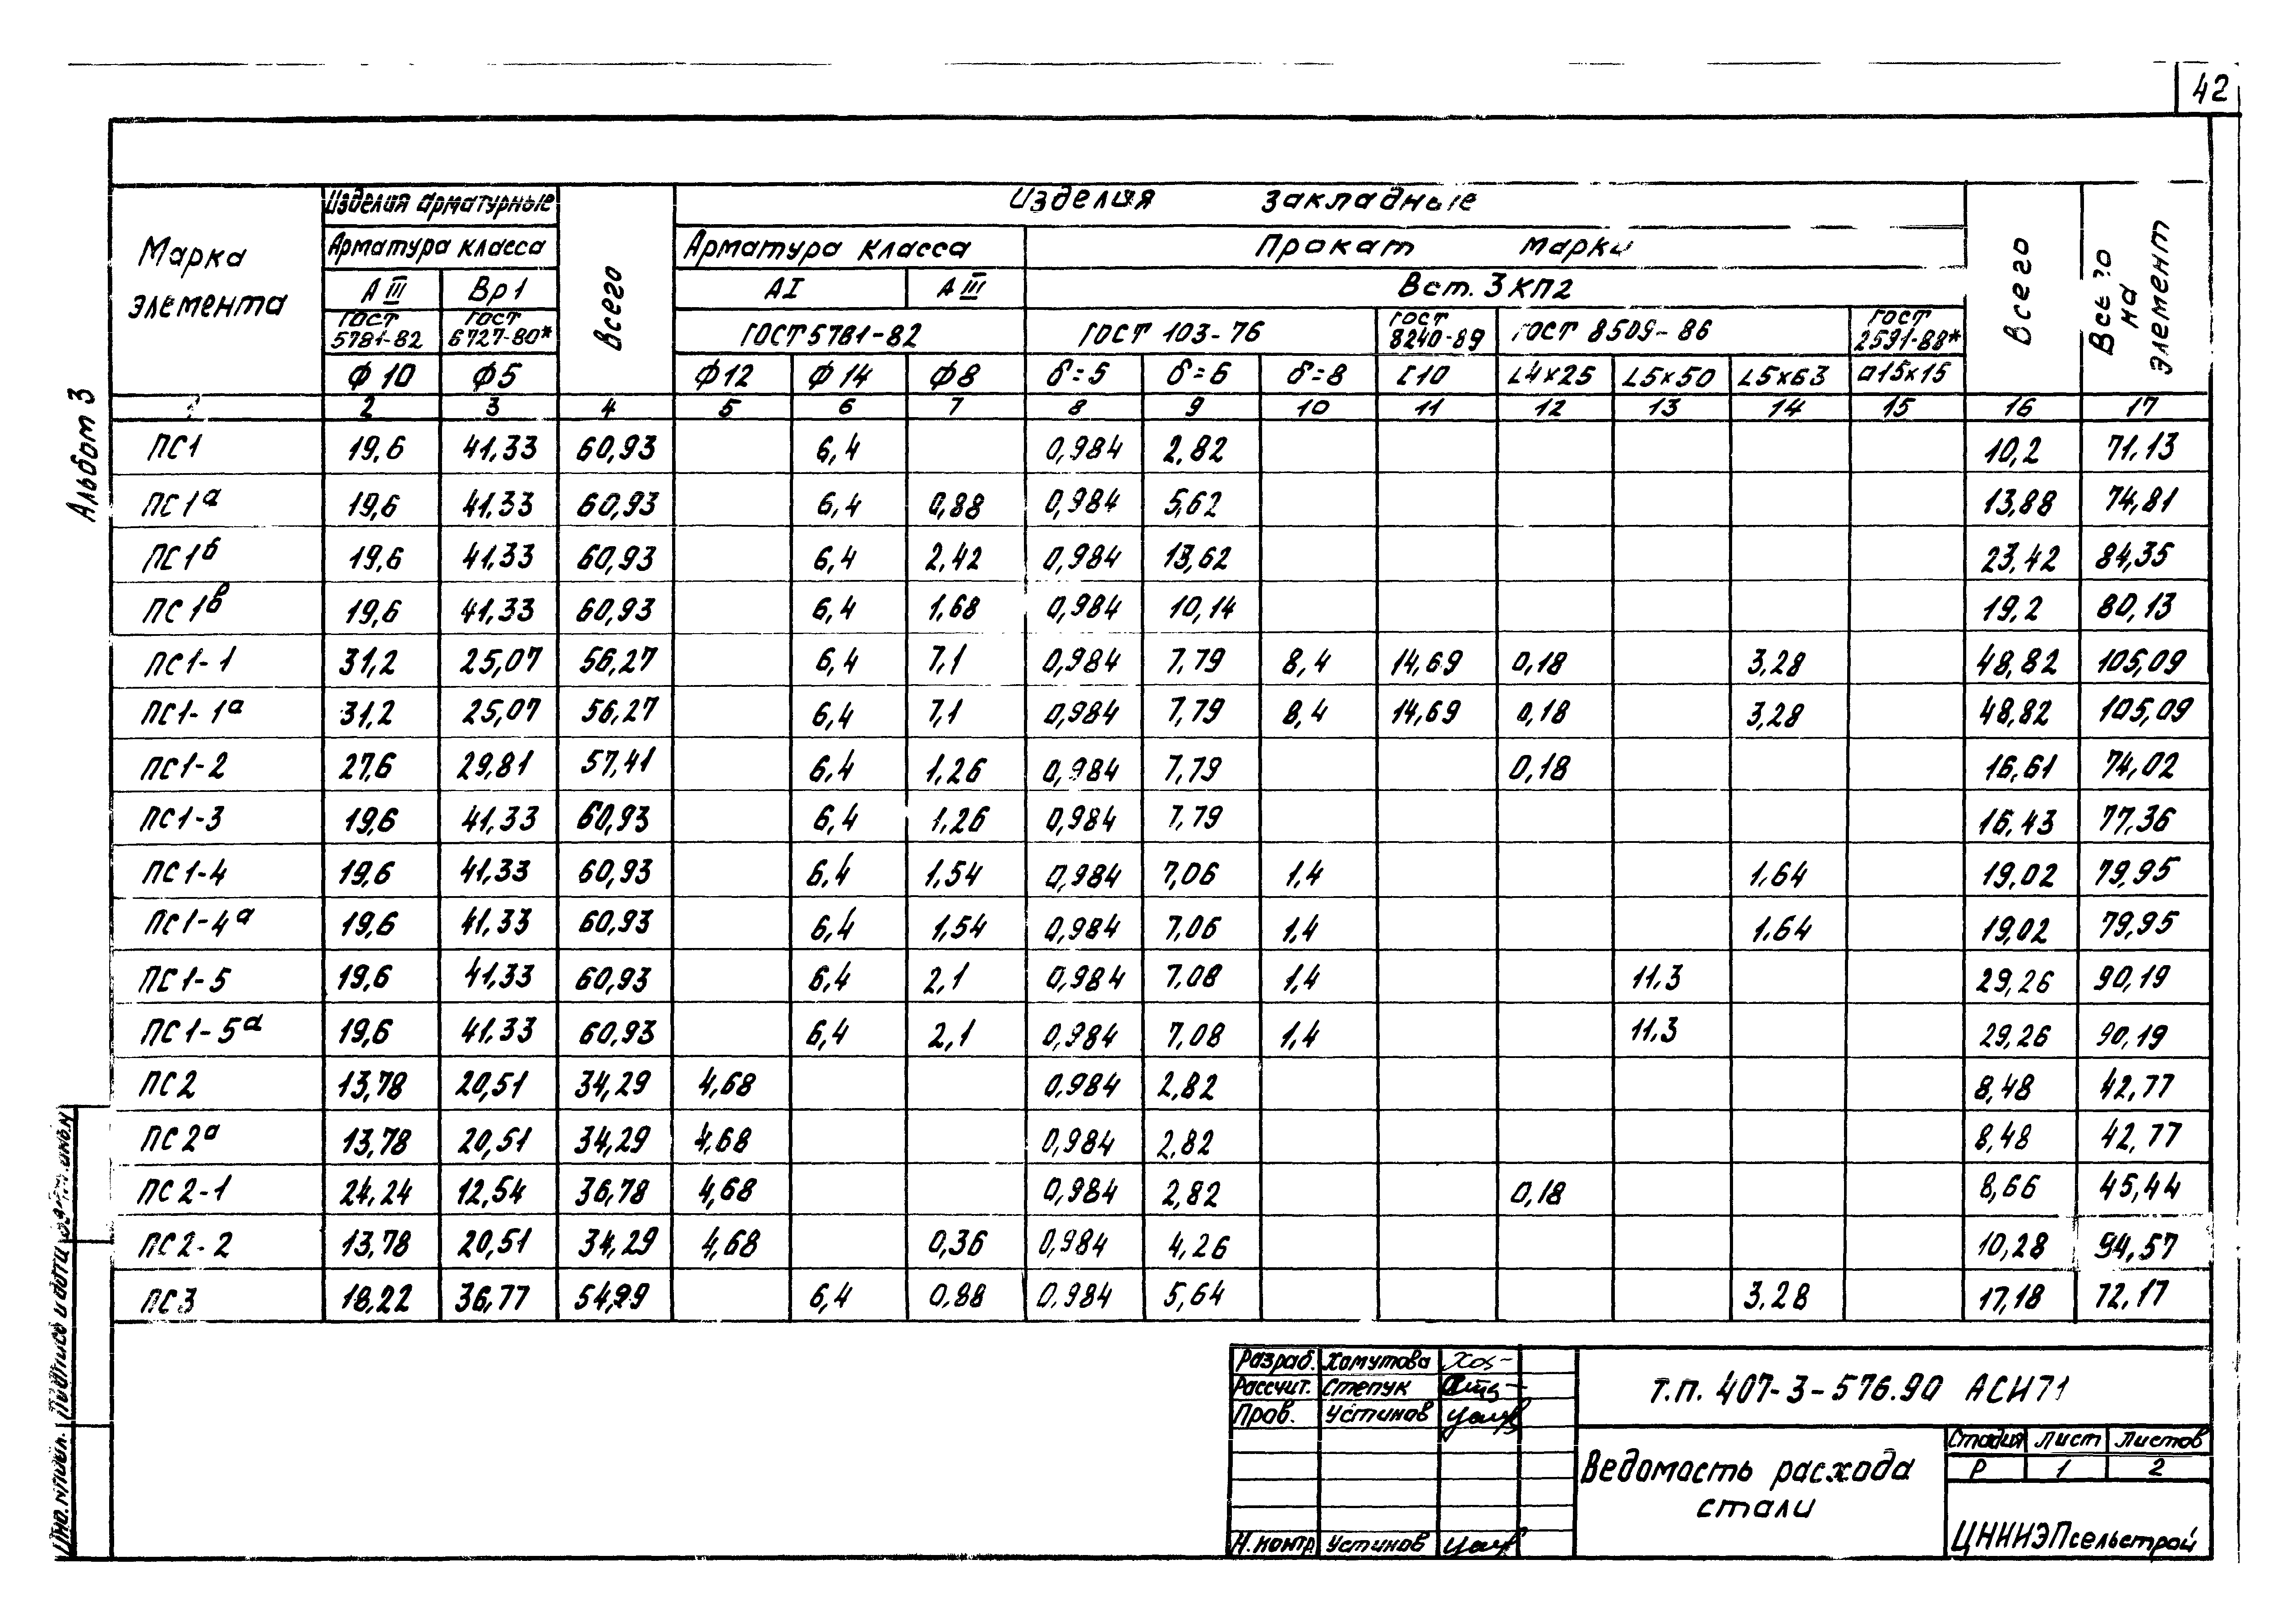 42
Альбом 3
Марка элемента
Изделия арматурные
Всего
Изделия закладные
Всего
Всего на элемент
Арматура класса
Арматура класса
Прокат марки
А III
Вр1
АI
А III
Вст. 3 КП2
ГОСТ 5781-82
ГОСТ 6727-80*
ГОСТ 5781-82
ГОСТ 103-76
ГОСТ 8240-89
ГОСТ 8509-86
ГОСТ 2591-88*
Ф 10 Ф5 Ф12 Ф 14 Ф8 δ=5 δ=6 δ=8 [10 ∟4×25 ∟5×50 ∟5×63 □15×15
1 2 3 4 5 6 7 8 9 10 11 12 13 14 15 16 17
ПС1 19,6 41,33 60,93 6,4 0,984 2,82 10,2 71,13
ПС1а 19,6 41,33 60,93 6,4 0,88 0,984 5,62 13,88 74,81
ПС1б 19,6 41,33 60,93 6,4 2,42 0,984 13,62 23,42 84,35
ПС1в 19,6 41,33 60,93 6,4 1,68 0,984 10,14 19,2 80,13
ПС1-1 31,2 25,07 56,27 6,4 7,1 0,984 7,79 8,4 14,69 0,18 3,28 48,82 105,09
ПС1-1а 31,2 25,07 56,27 6,4 7,1 0,984 7,79 8,4 14,69 0,18 3,28 48,82 105,09
ПС1-2 27,6 29,81 57,41 6,4 1,26 0,984 7,79 0,18 16,61 74,02
ПС1-3 19,6 41,33 60,93 6,4 1,26 0,984 7,79 16,43 77,36
ПС1-4 19,6 41,33 60,93 6,4 1,54 0,984 7,06 1,4 1,64 19,02 79,95
ПС1-4а 19,6 41,33 60,93 6,4 1,54 0,984 7,06 1,4 1,64 19,02 79,95
ПС1-5 19,6 41,33 60,93 6,4 2,1 0,984 7,08 1,4 11,3 29,26 90,19
ПС1-5а 19,6 41,33 60,93 6,4 2,1 0,984 7,08 1,4 11,3 29,26 90,19
ПС2 13,78 20,51 34,29 4,68 0,984 2,82 8,48 42,77
ПС2а 13,78 20,51 34,29 4,68 0,984 2,82 8,48 42,77
ПС2-1 24,24 12,54 36,78 4,68 0,984 2,82 0,18 8,66 45,44
ПС2-2 13,78 20,51 34,29 4,68 0,36 0,984 4,26 10,28 94,57
ПС3 18,22 36,77 54,99 6,4 0,88 0,984 5,64 3,28 17,18 72,17
Разраб. Хомутова
Рассчит. Степук
Пров. Устинов
Н.контр Устинов
т.п. 407-3-576.90 АСИ71
Ведомость расхода стали
Стадия Лист Листов
Р 1 2
ЦНИИЭПсельстрой
Инв.№подл. Подпись и дата